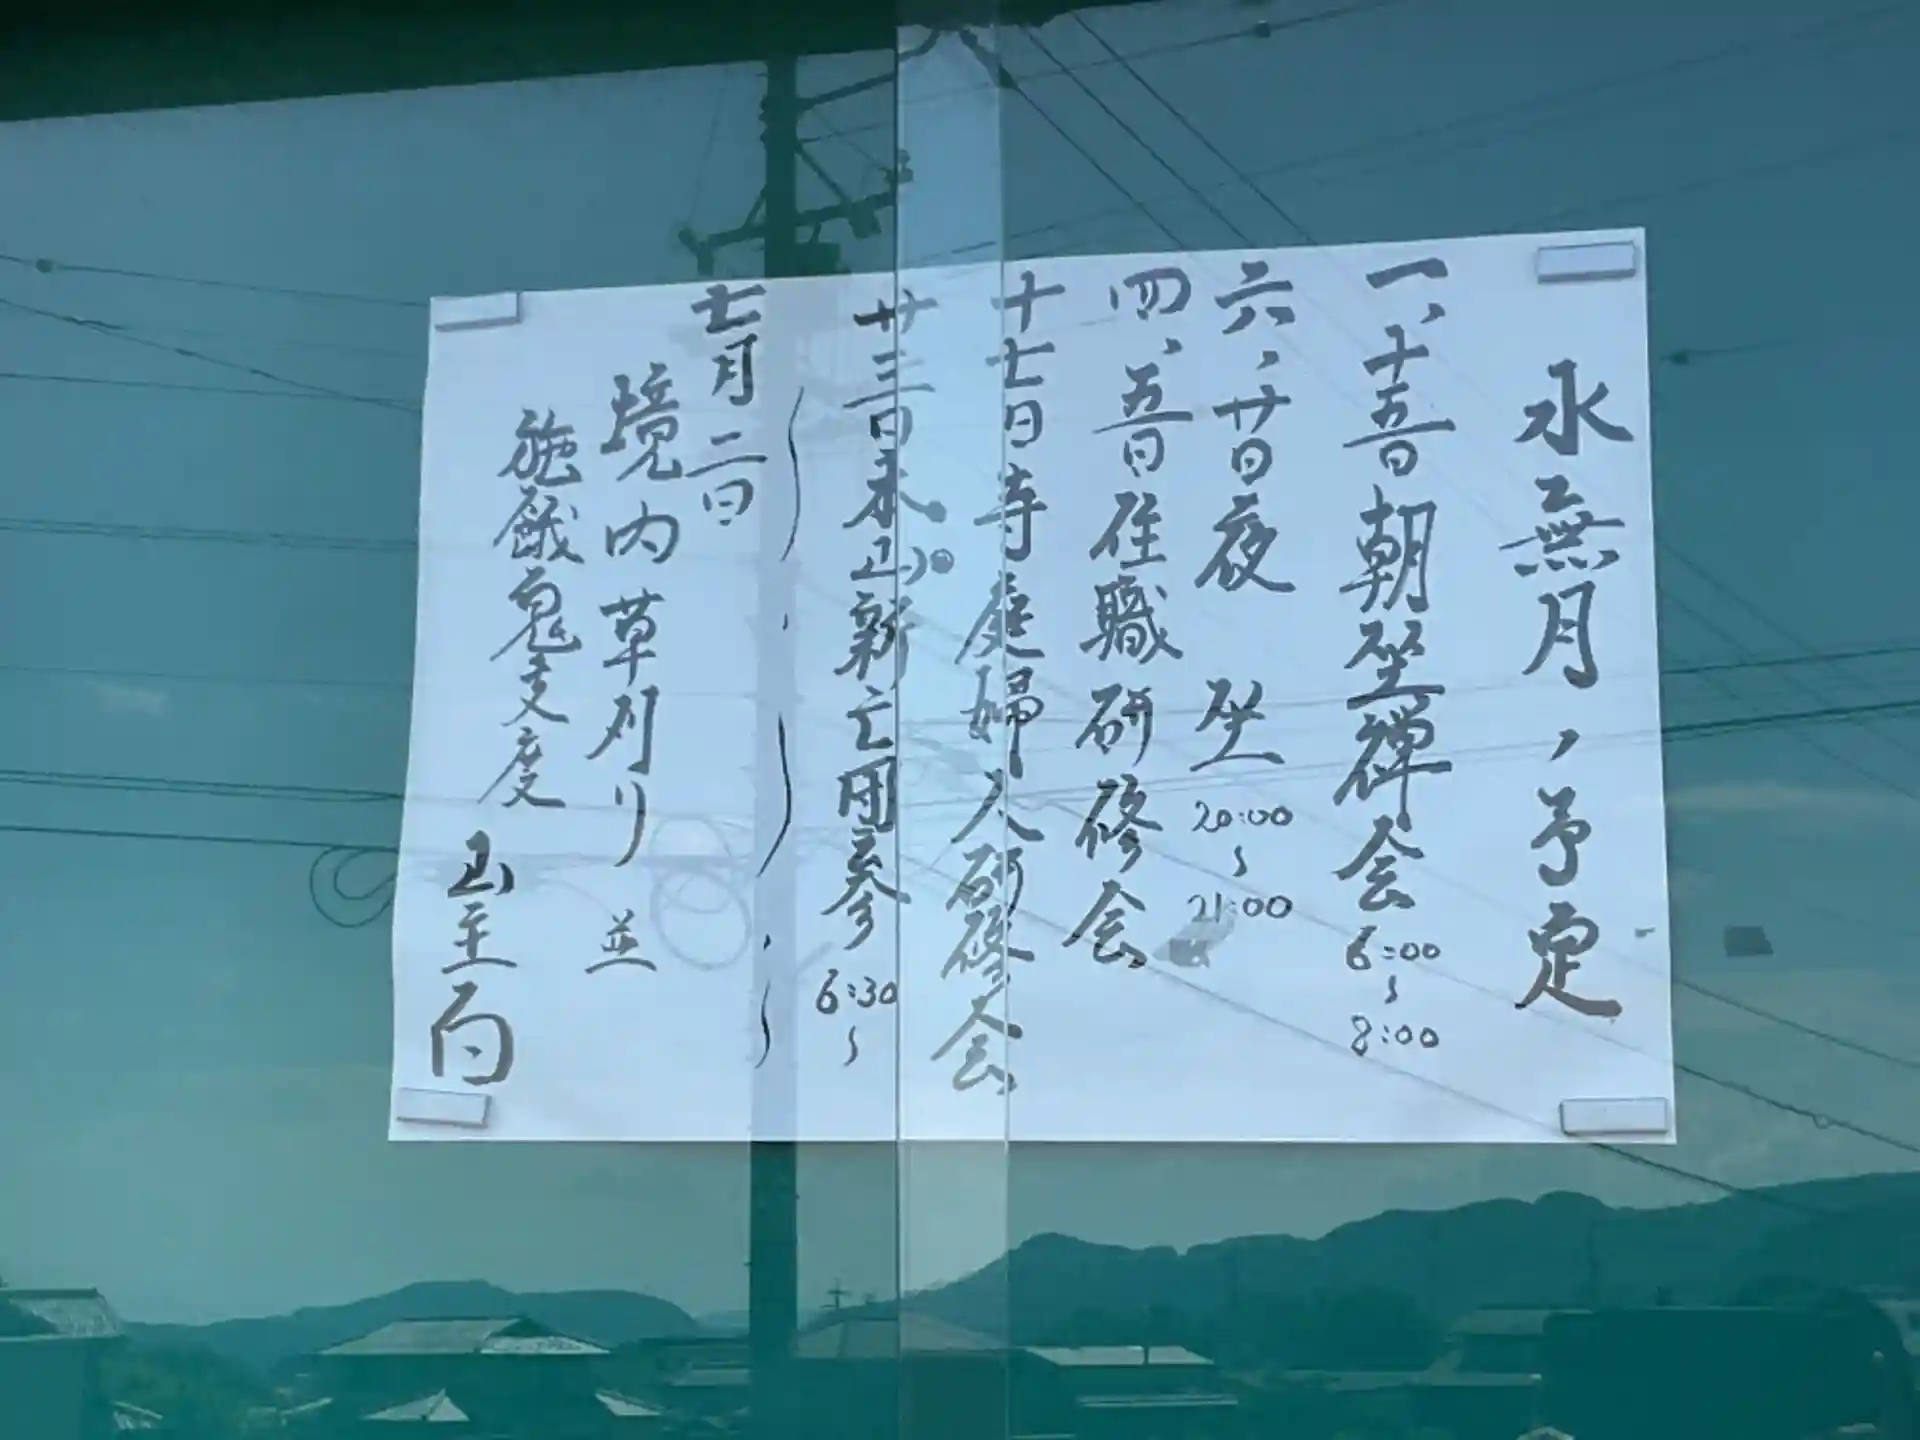 水無月ノ予定
一、十五日朝坐禅会 6:00〜8:00
六、廿日夜 坐 20:00〜21:00
四、五日住職研修会
十七日寺庭婦人研修会
廿三日本山新亡団参 6:30〜
七月二日
境内草刈り 並
施餓鬼支度
山主 白